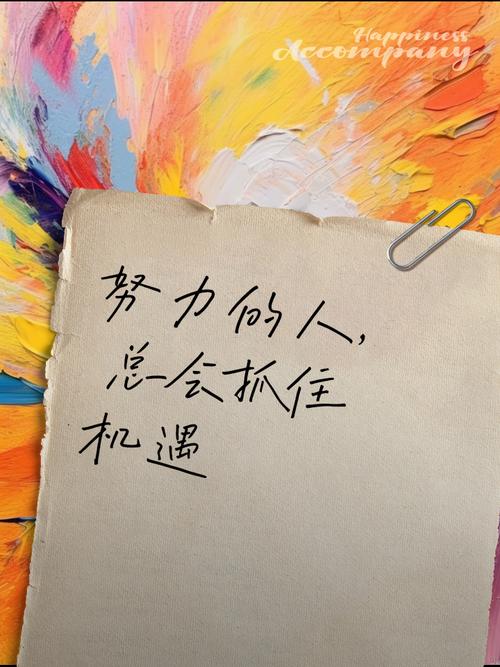 Happiness
Accompany
努力的人,
总会抓住
机遇